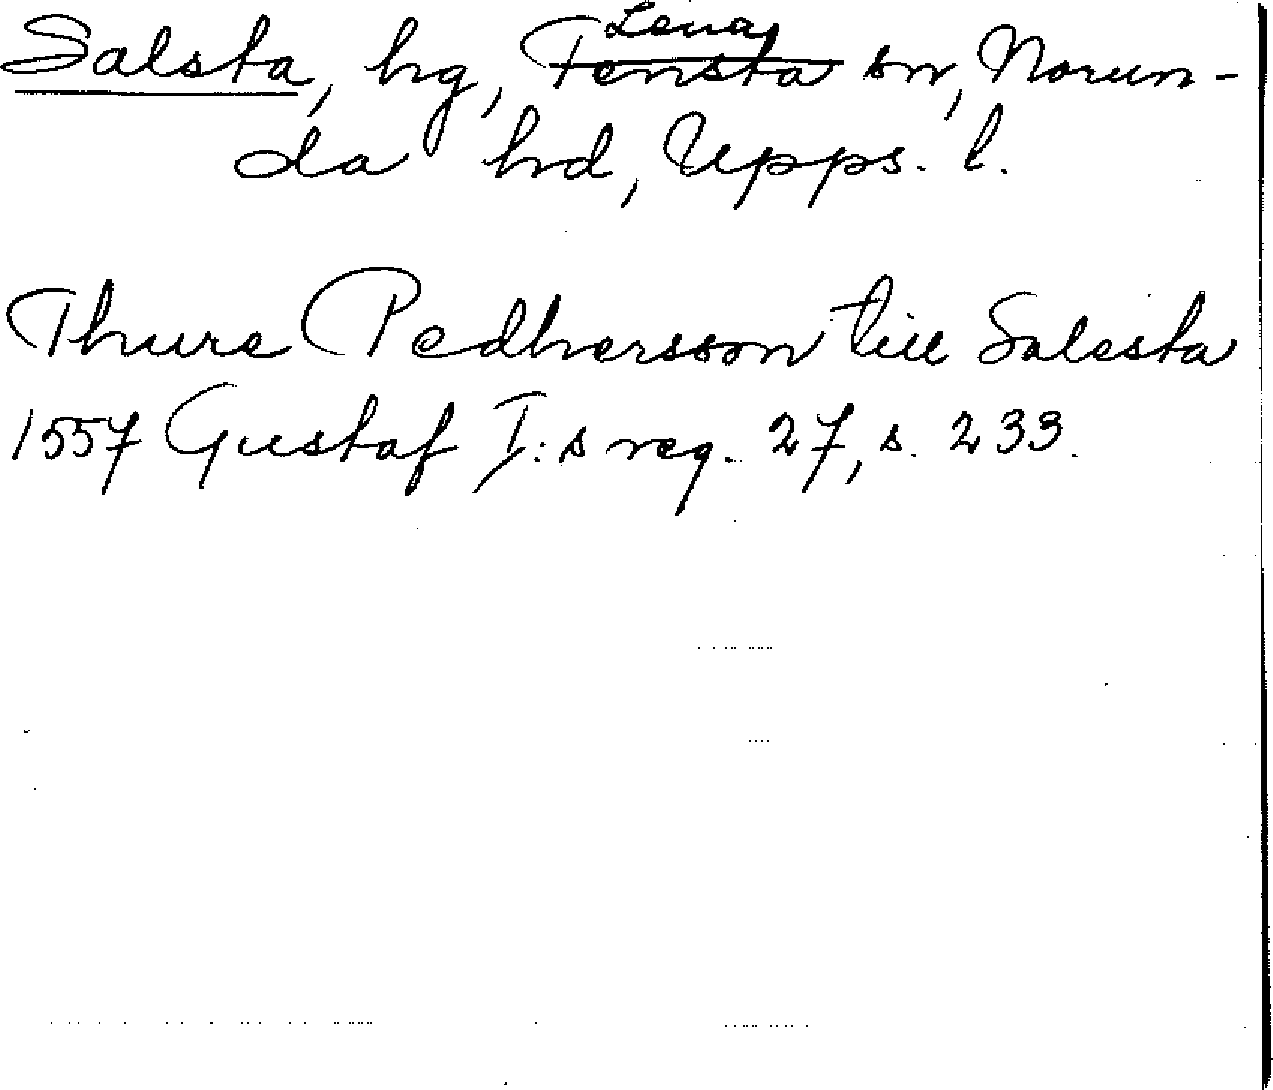 Salsta, hg, Tensta Lena sn, Norun-
da hd, Upps. l.
Thure Pedhersson till Salesta
1557 Gustaf I:s reg. 27, s. 233.